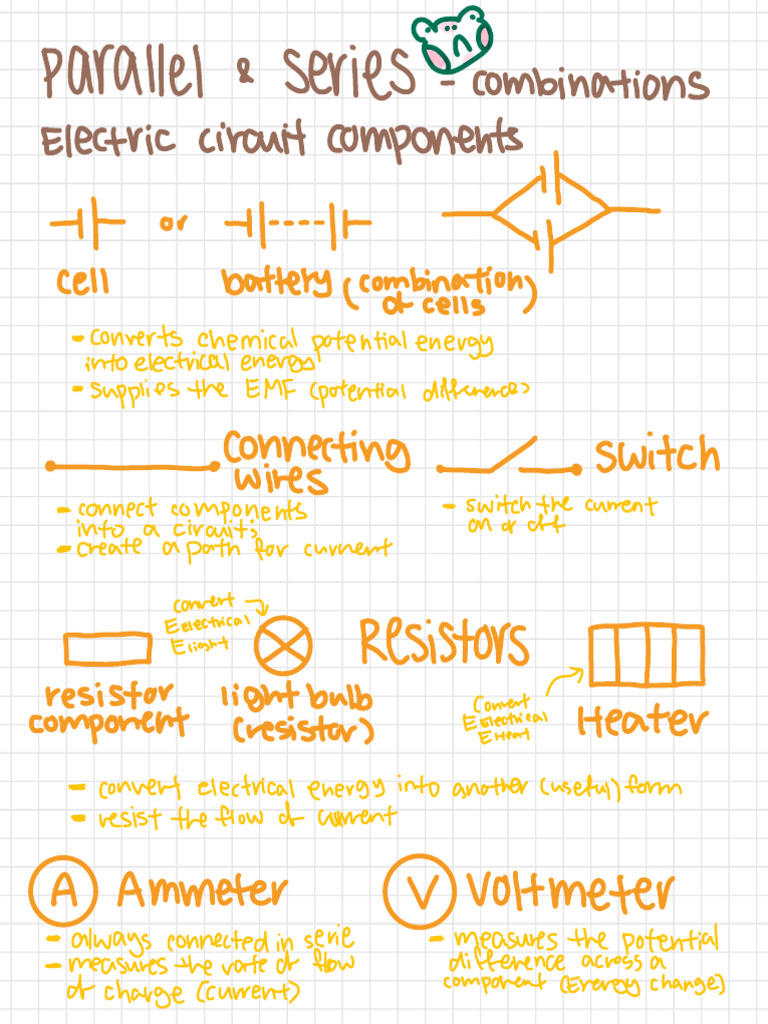 Parallel & Series - combinations
Electric circuit components
or
cell
battery (combination of cells)
- converts chemical potential energy
into electrical energy
- supplies the EMF (potential difference)
Connecting
wires
Switch
- connect components
into a circuit;
- create a path for current
- switch the current
on or off
convert
Eelectrical
Elight
Resistors
resistor
component
light bulb
(resistor)
Convert
Eelectrical
EHeat
Heater
- convert electrical energy into another (useful) form
- resist the flow of current
A Ammeter
- always connected in serie
- measures the rate of flow
of charge (current)
V Voltmeter
- measures the potential
difference across a
component (Energy change)